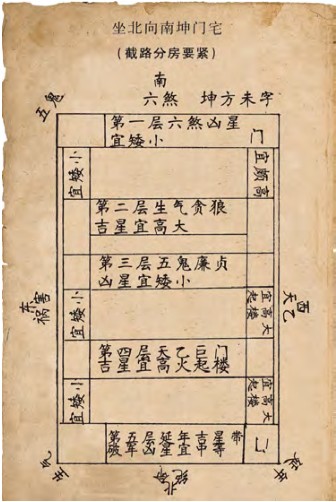 坐北向南坤门宅
(截路分房要紧)
南
五鬼
六煞 坤方未字
第一层六煞凶星
宜矮小
门
宜矮小
宜颇高
第二层生气贪狼
吉星宜高大
第三层五鬼廉贞
凶星宜矮小
东
祸害
宜矮小
宜高大
起楼
西
天乙
第四层天乙巨门
吉星宜高大起楼
宜矮小
宜高大
起楼
第五层延年宜吉星带
破军凶星宜串等
生气
北
绝命
延年